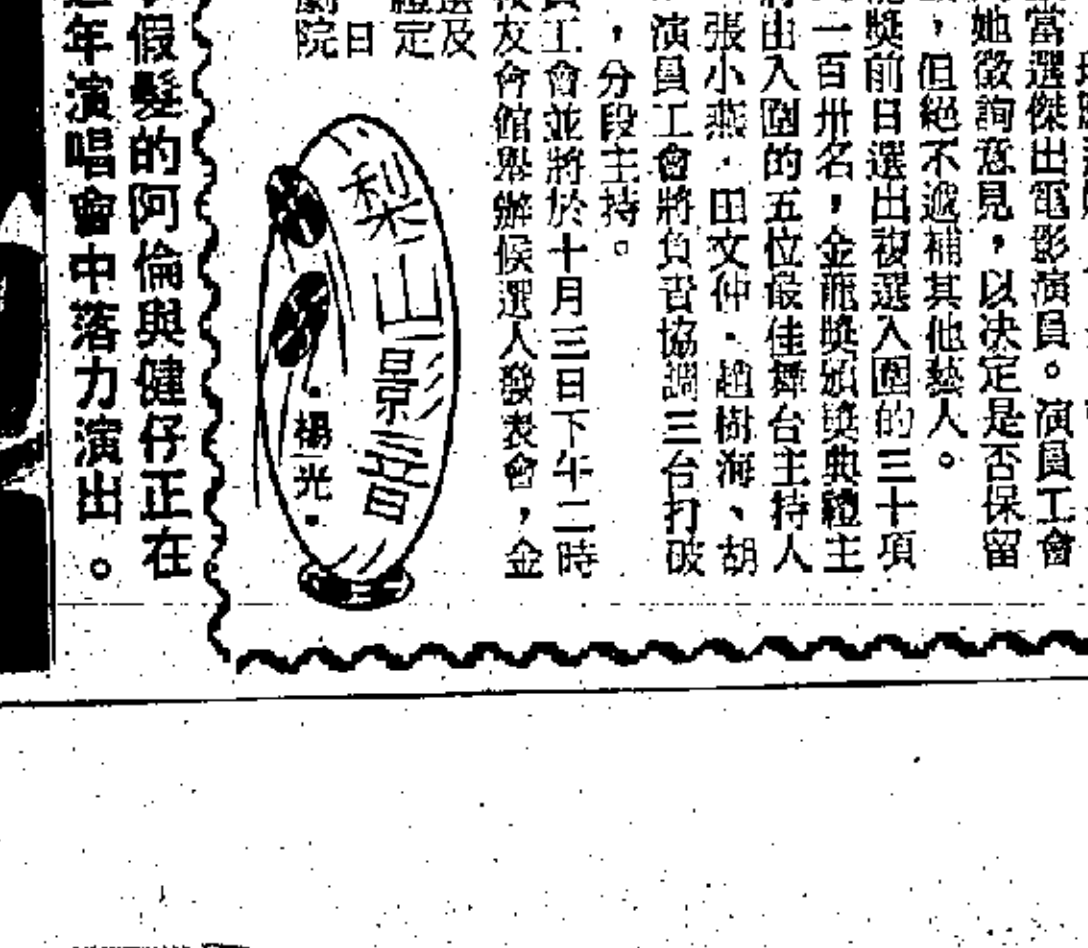 當選傑出電影演員。演員工會
她徵詢意見，以決定是否保留
，但絕不遞補其他藝人。
獎前日選出複選入圍的三十項
一百卅名，金龍獎頒獎典禮主
由入圍的五位最佳舞台主持人
張小燕．田文仲．趙樹海、胡
演員工會將負責協調三台打破
，分段主持。
工會並將於十月三日下午二時
友會館舉辦候選人發表會，金
選及
禮定
日
劇院
梨山影音
．楊光．
假髮的阿倫與健仔正在
年演唱會中落力演出。